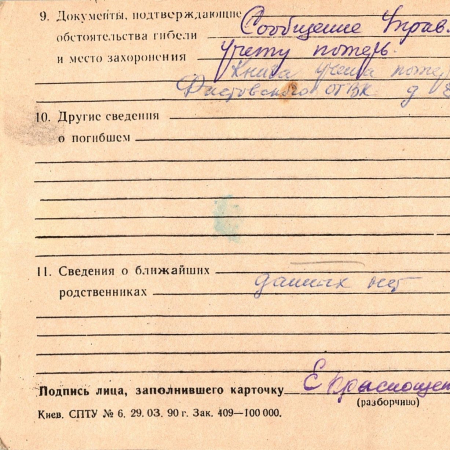 9. Документы, подтверждающие Сообщение Управ.
обстоятельства гибели учету потерь.
и место захоронения Книга учета потер
Фастовского ОГВК д
10. Другие сведения
о погибшем
11. Сведения о ближайших
родственниках данных нет
Подпись лица, заполнившего карточку Е Краснощек
(разборчиво)
Киев. СПТУ № 6. 29. 03. 90 г. Зак. 409—100 000.